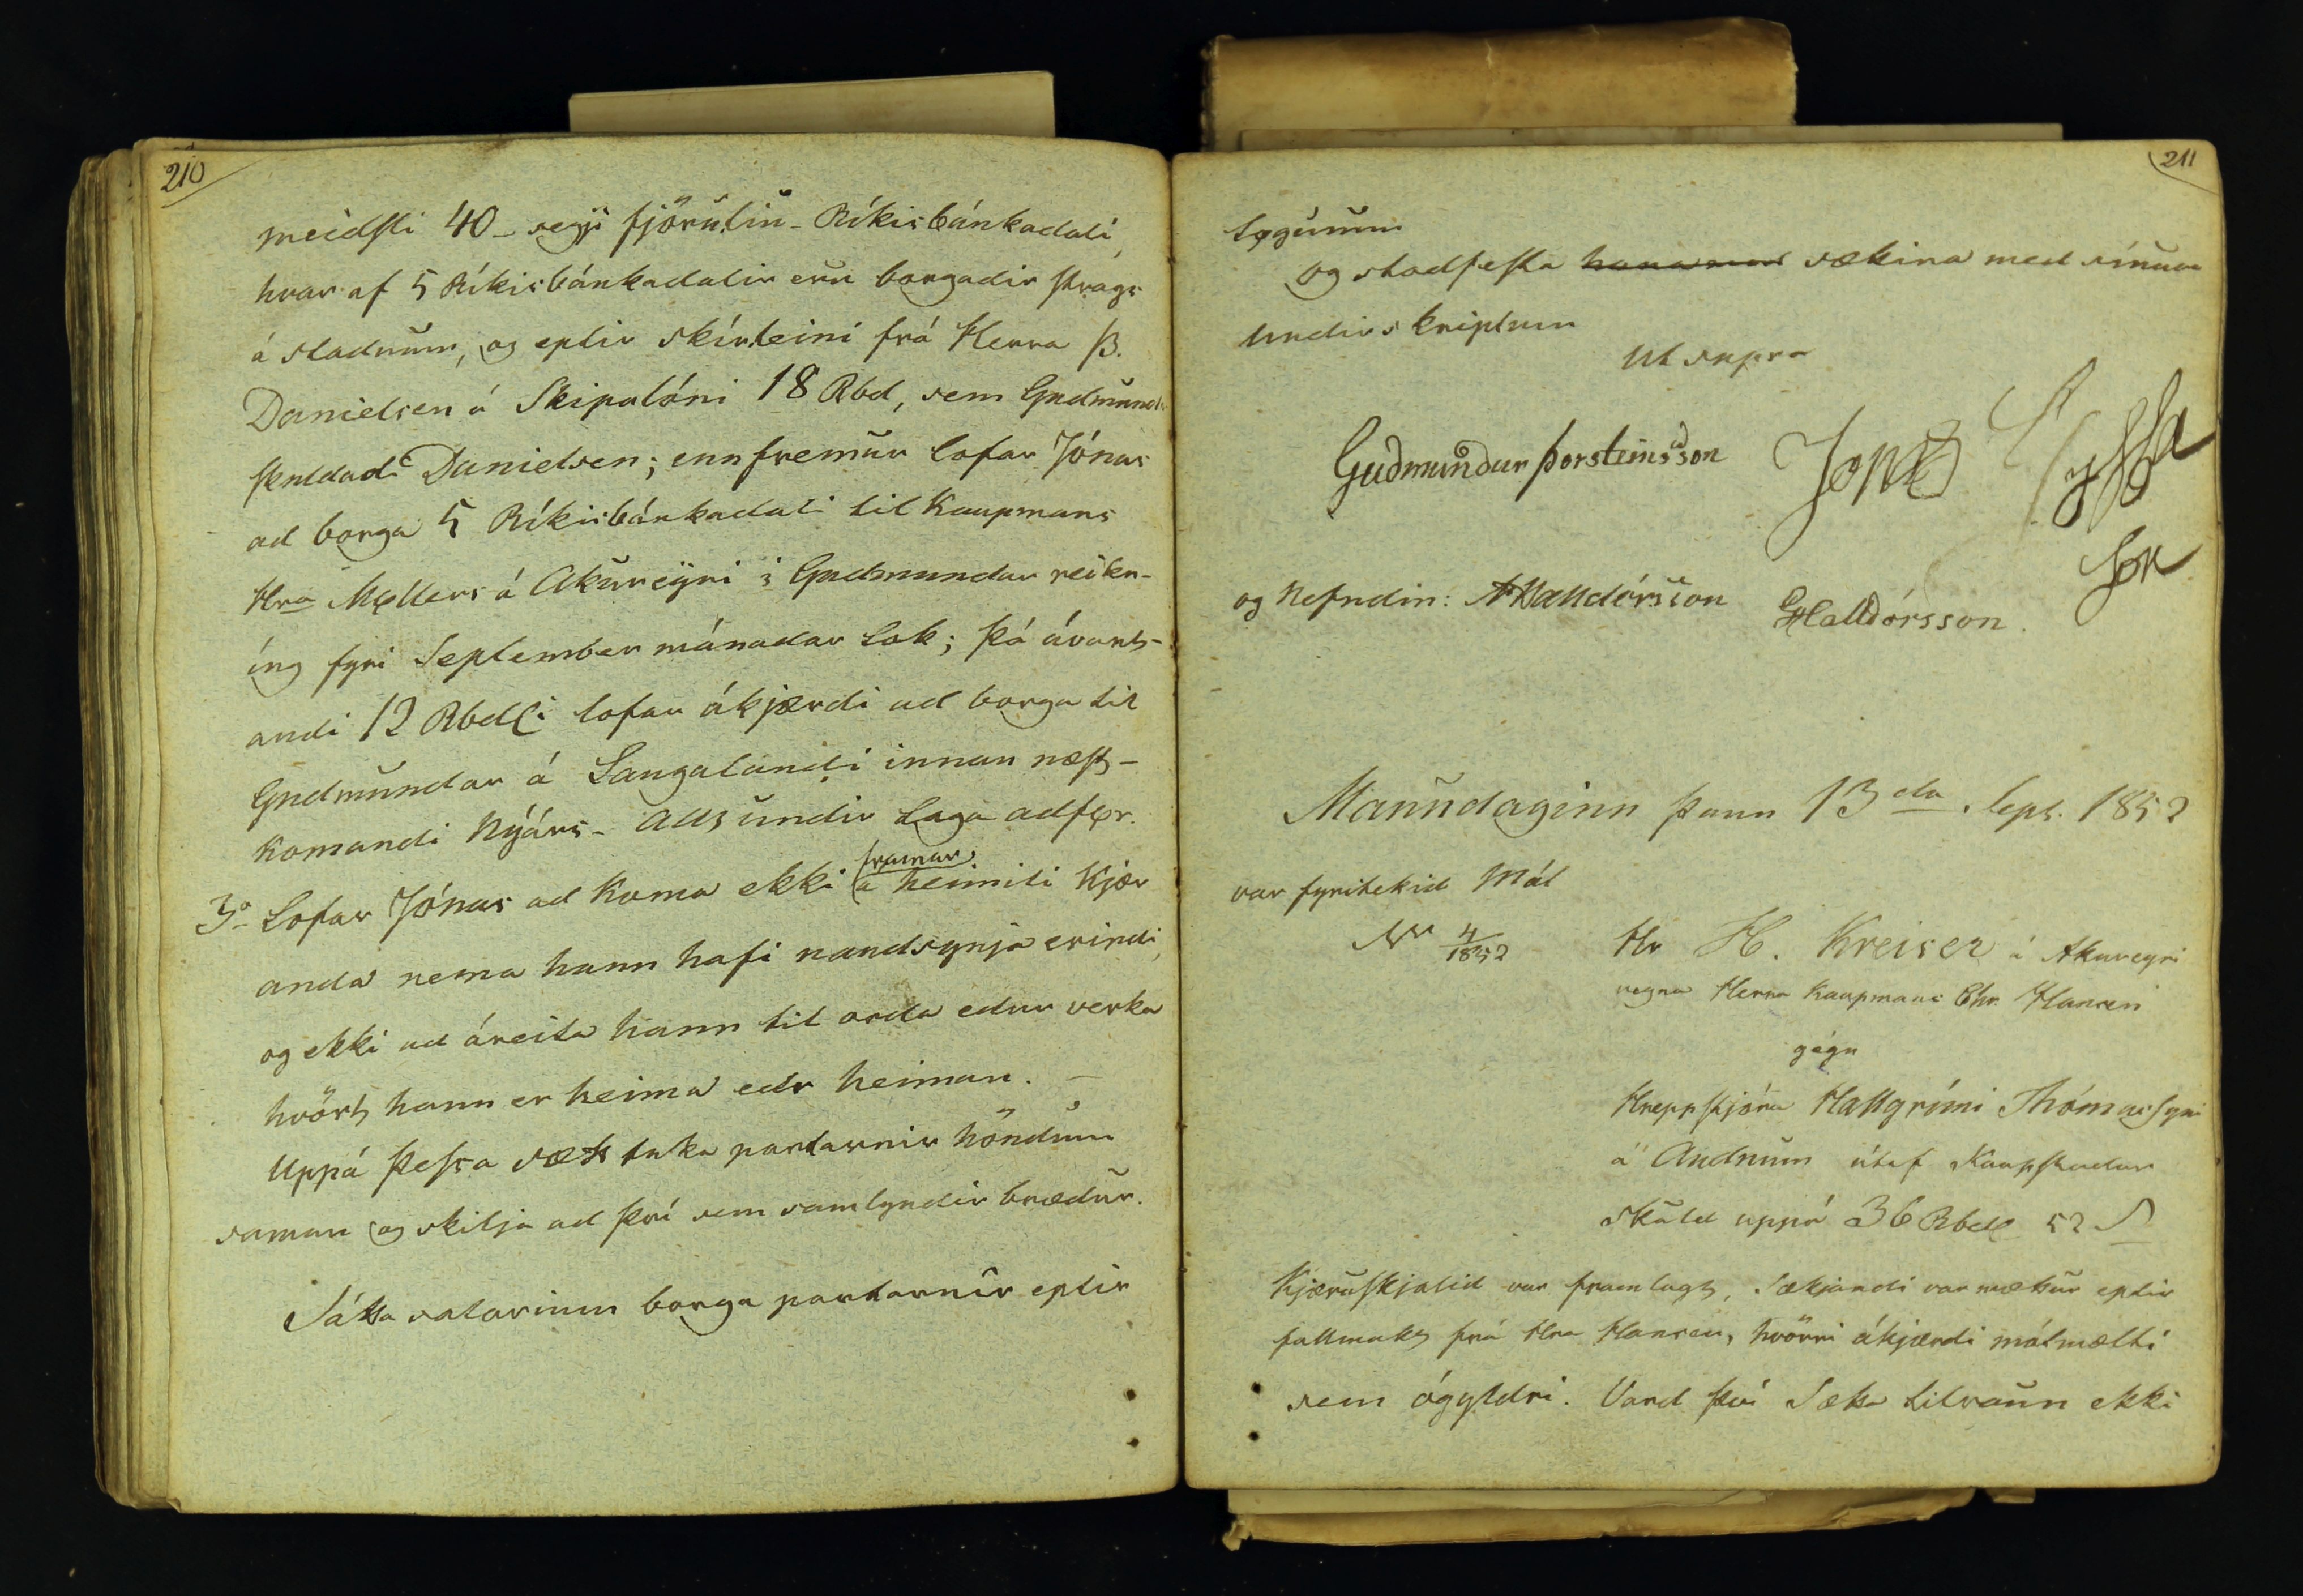 210
meidsli 40 – segji fjörutíu – Ríkisbánkadali,
hvar af 5 Ríkisbánkadalir eru borgadir strags
á stadnum, og eptir skírteini frá Herra Þ.
Danielsen á Skipalóni 18 Rbd, sem Gudmundr
skuldadi Danielsen; ennfremur lofar Jónas
ad borga 5 Ríkisbánkadali til Kaupmans
Hra Møllers á Akureÿri í Gudmundar reikn-
íng fyri September mánadar lok; þá ávant-
andi 12 Rbdli lofar ákjærdi ad borga til
Gudmundar á Laugalandi innan næst-
komandi Nýárs – allt undir laga adför.
3o Lofar Jónas ad koma ekki framar á heimili kjær
anda nema hann hafi naudsynja erindi,
og ekki ad áreita hann til orda edur verka
hvört hann er heima edr heiman. –
Uppá þessa sætt taka partarnir höndum
saman og skilja ad því sem samlyndir brædur.
Sátta salarium borga partarnir eptir
211
løgunum
og stadfesta sættina med sínum
undirskriptum
Ut supra
Gudmundur Þorsteinsson Jonas
son
og Nefndin: AHalldórsson GHalldórsson.
Maanudaginn þann 13da Sept. 1852
var fyritekid Mál
Nr 4/1852 Hr H. Kreiser á Akureyri
vegna Herra Kaupmans Chr. Hansen
gegn
Hreppstjóra Hallgrími Thómassyni
á útaf Kaupstadar
skuld uppá 36 Rbd 52 S
Kjæruskjalid var framlagt, Sækjandi var mættur eptir
fullmakt frá Hra Hansen, hvörri ákjærdi mótmælti
sem ógyldri. Vard því Sætta tilraun ekki